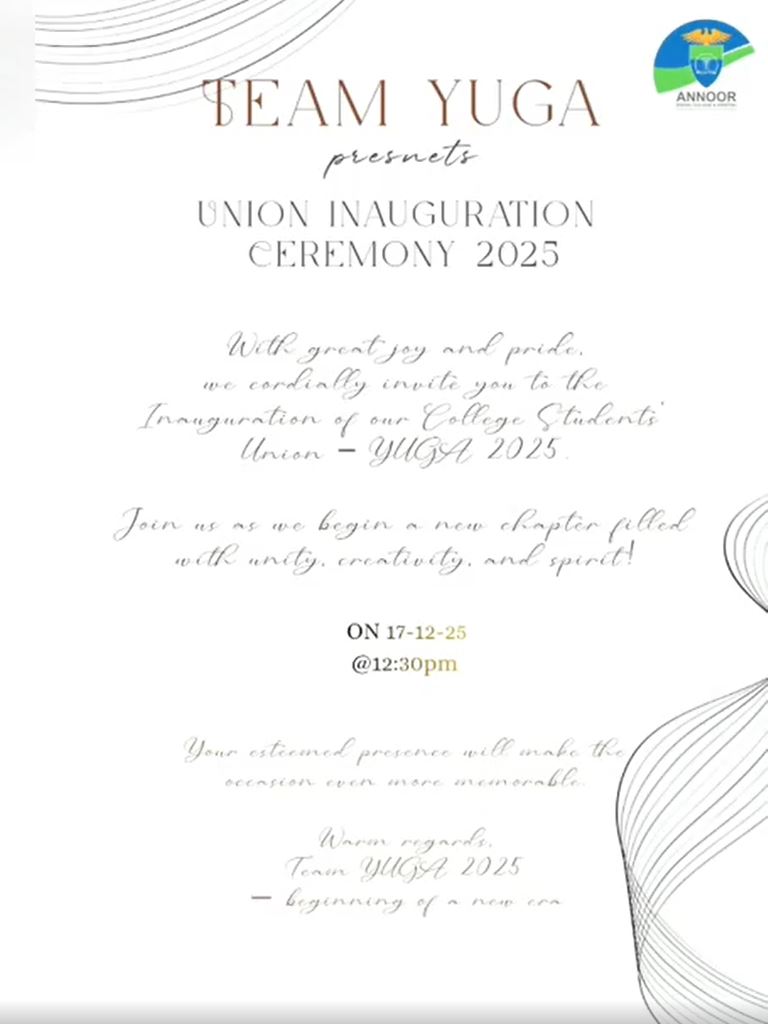 TEAM YUGA
presnets
UNION INAUGURATION
CEREMONY 2025
ANNOOR
With great joy and pride,
we cordially invite you to the
Inauguration of our College Students'
Union – YUGA 2025.
Join us as we begin a new chapter filled
with unity, creativity, and spirit!
ON 17-12-25
@12:30pm
Your esteemed presence will make the
occasion even more memorable.
Warm regards,
Team YUGA 2025
– beginning of a new era